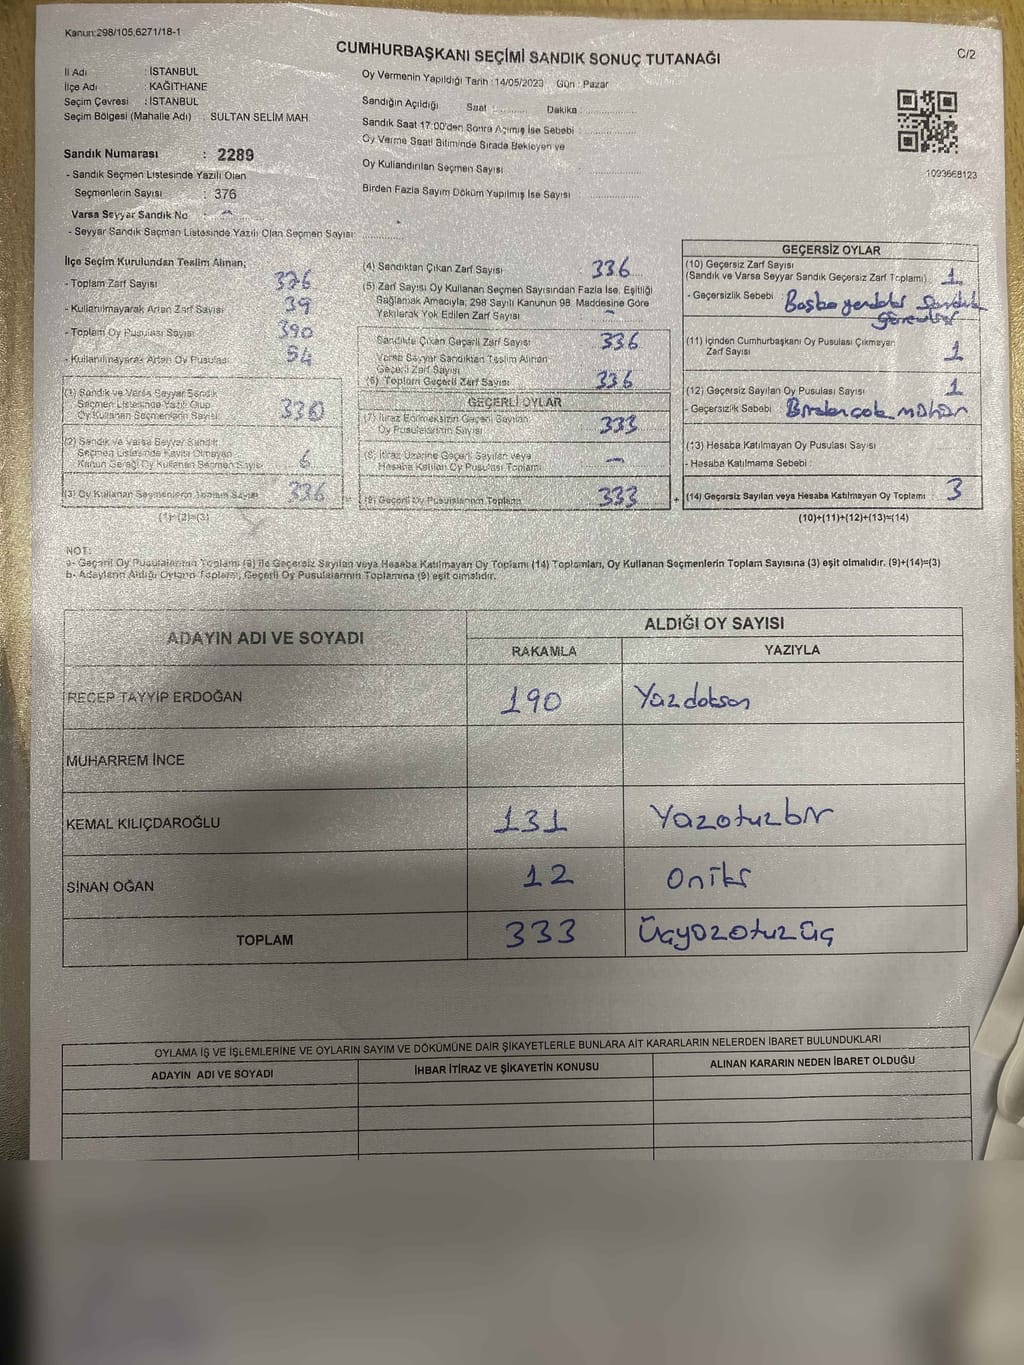 Kanun:298/105,6271/18-1
CUMHURBAŞKANI SEÇİMİ SANDIK SONUÇ TUTANAĞI
C/2
İl Adı : İSTANBUL
İlçe Adı : KAĞITHANE
Seçim Çevresi : İSTANBUL
Seçim Bölgesi (Mahalle Adı) : SULTAN SELİM MAH.
Sandık Numarası : 2289
- Sandık Seçmen Listesinde Yazılı Olan
Seçmenlerin Sayısı : 376
Varsa Seyyar Sandık No :
- Seyyar Sandık Seçmen Listesinde Yazılı Olan Seçmen Sayısı: ............
Oy Vermenin Yapıldığı Tarih : 14/05/2023 Gün : Pazar
Sandığın Açıldığı Saat : ............ Dakika : ............
Sandık Saat 17:00'den Sonra Açılmış İse Sebebi : ............
Oy Verme Saati Bitiminde Sırada Bekleyen ve
Oy Kullandırılan Seçmen Sayısı : ............
Birden Fazla Sayım Döküm Yapılmış İse Sayısı : ............
1093668123
İlçe Seçim Kurulundan Teslim Alınan;
- Toplam Zarf Sayısı : 376
- Kullanılmayarak Artan Zarf Sayısı : 39
- Toplam Oy Pusulası Sayısı : 390
- Kullanılmayarak Artan Oy Pusulası : 54
(1) Sandık ve Varsa Seyyar Sandık
Seçmen Listesinde Yazılı Olup,
Oy Kullanan Seçmenlerin Sayısı 330
(2) Sandık ve Varsa Seyyar Sandık
Seçmen Listesinde Kayıtlı Olmayan
Kanun Gereği Oy Kullanan Seçmen Sayısı 6
(3) Oy Kullanan Seçmenlerin Toplam Sayısı 336
(1)+(2)=(3)
(4) Sandıktan Çıkan Zarf Sayısı 336
(5) Zarf Sayısı Oy Kullanan Seçmen Sayısından Fazla İse, Eşitliği
Sağlamak Amacıyla; 298 Sayılı Kanunun 98. Maddesine Göre
Yakılarak Yok Edilen Zarf Sayısı -
Sandıkta Çıkan Geçerli Zarf Sayısı 336
Varsa Seyyar Sandıktan Teslim Alınan
Geçerli Zarf Sayısı
(6) Toplam Geçerli Zarf Sayısı 336
GEÇERLİ OYLAR
(7) İtiraz Edilmeksizin Geçerli Sayılan
Oy Pusulalarının Sayısı 333
(8) İtiraz Üzerine Geçerli Sayılan veya
Hesaba Katılan Oy Pusulası Toplamı -
(9) Geçerli Oy Pusulalarının Toplamı 333
GEÇERSİZ OYLAR
(10) Geçersiz Zarf Sayısı
(Sandık ve Varsa Seyyar Sandık Geçersiz Zarf Toplamı) 1
- Geçersizlik Sebebi :
(11) İçinden Cumhurbaşkanı Oy Pusulası Çıkmayan
Zarf Sayısı 1
(12) Geçersiz Sayılan Oy Pusulası Sayısı 1
- Geçersizlik Sebebi : Birden çok mühür
(13) Hesaba Katılmayan Oy Pusulası Sayısı
- Hesaba Katılmama Sebebi :
+ (14) Geçersiz Sayılan veya Hesaba Katılmayan Oy Toplamı 3
(10)+(11)+(12)+(13)=(14)
NOT:
a- Geçerli Oy Pusulalarının Toplamı (9) ile Geçersiz Sayılan veya Hesaba Katılmayan Oy Toplamı (14) Toplamları, Oy Kullanan Seçmenlerin Toplam Sayısına (3) eşit olmalıdır. (9)+(14)=(3)
b- Adayların Aldığı Oyların Toplamı, Geçerli Oy Pusulalarının Toplamına (9) eşit olmalıdır.
ADAYIN ADI VE SOYADI
ALDIĞI OY SAYISI
RAKAMLA YAZIYLA
RECEP TAYYİP ERDOĞAN 190 Yüzdoksan
MUHARREM İNCE
KEMAL KILIÇDAROĞLU 131 Yüzotuzbir
SİNAN OĞAN 12 Oniki
TOPLAM 333 Üçyüzotuzüç
OYLAMA İŞ VE İŞLEMLERİNE VE OYLARIN SAYIM VE DÖKÜMÜNE DAİR ŞİKAYETLERLE BUNLARA AİT KARARLARIN NELERDEN İBARET BULUNDUKLARI
ADAYIN ADI VE SOYADI İHBAR İTİRAZ VE ŞİKAYETİN KONUSU ALINAN KARARIN NEDEN İBARET OLDUĞU